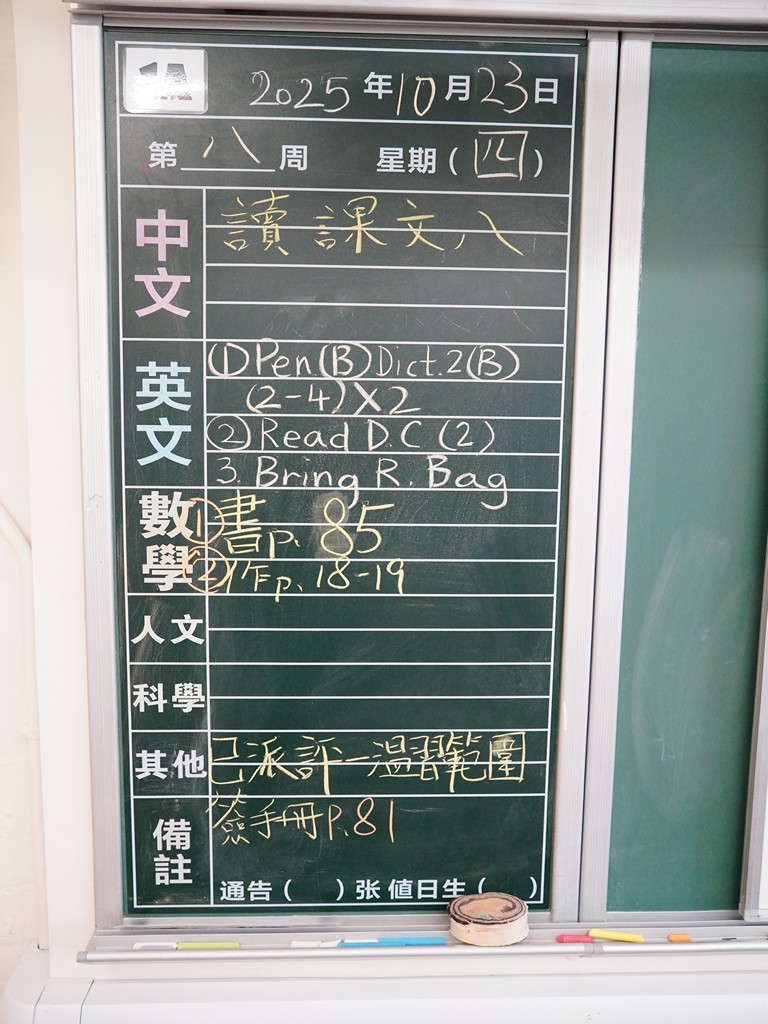 1A 2025年10月23日
第八周 星期(四)
中文 讀課文八
英文 ① Pen.(B) Dict.2(B)
(2-4)×2
② Read D.C (2)
3. Bring R. Bag
數學 ①書p.85
②作p.18-19
人文
科學
其他 已派評一溫習範圍
備註 簽手冊P.81
通告( )张 值日生( )